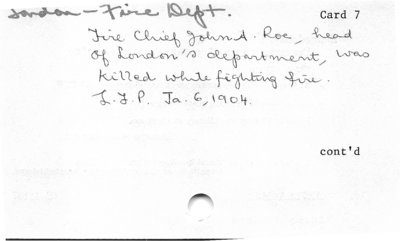 London - Fire Dept.
Card 7
Fire Chief John A. Roe, head
of London's department, was
killed while fighting fire.
L.F.P. Ja. 6, 1904.
cont'd